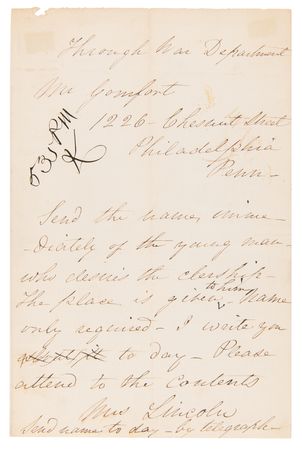 Through War Department
Mr Gomfort
1226 - Chesnut Street
Philadelphia
Penn -
5 35 PM
K
Send the name, imme
- diately of the young man -
who desires the clerkship -
to him
The place is given, Name
only required - I write you
to day - Please
attend to the contents
Mrs Lincoln
Send name to day - by telegraph -